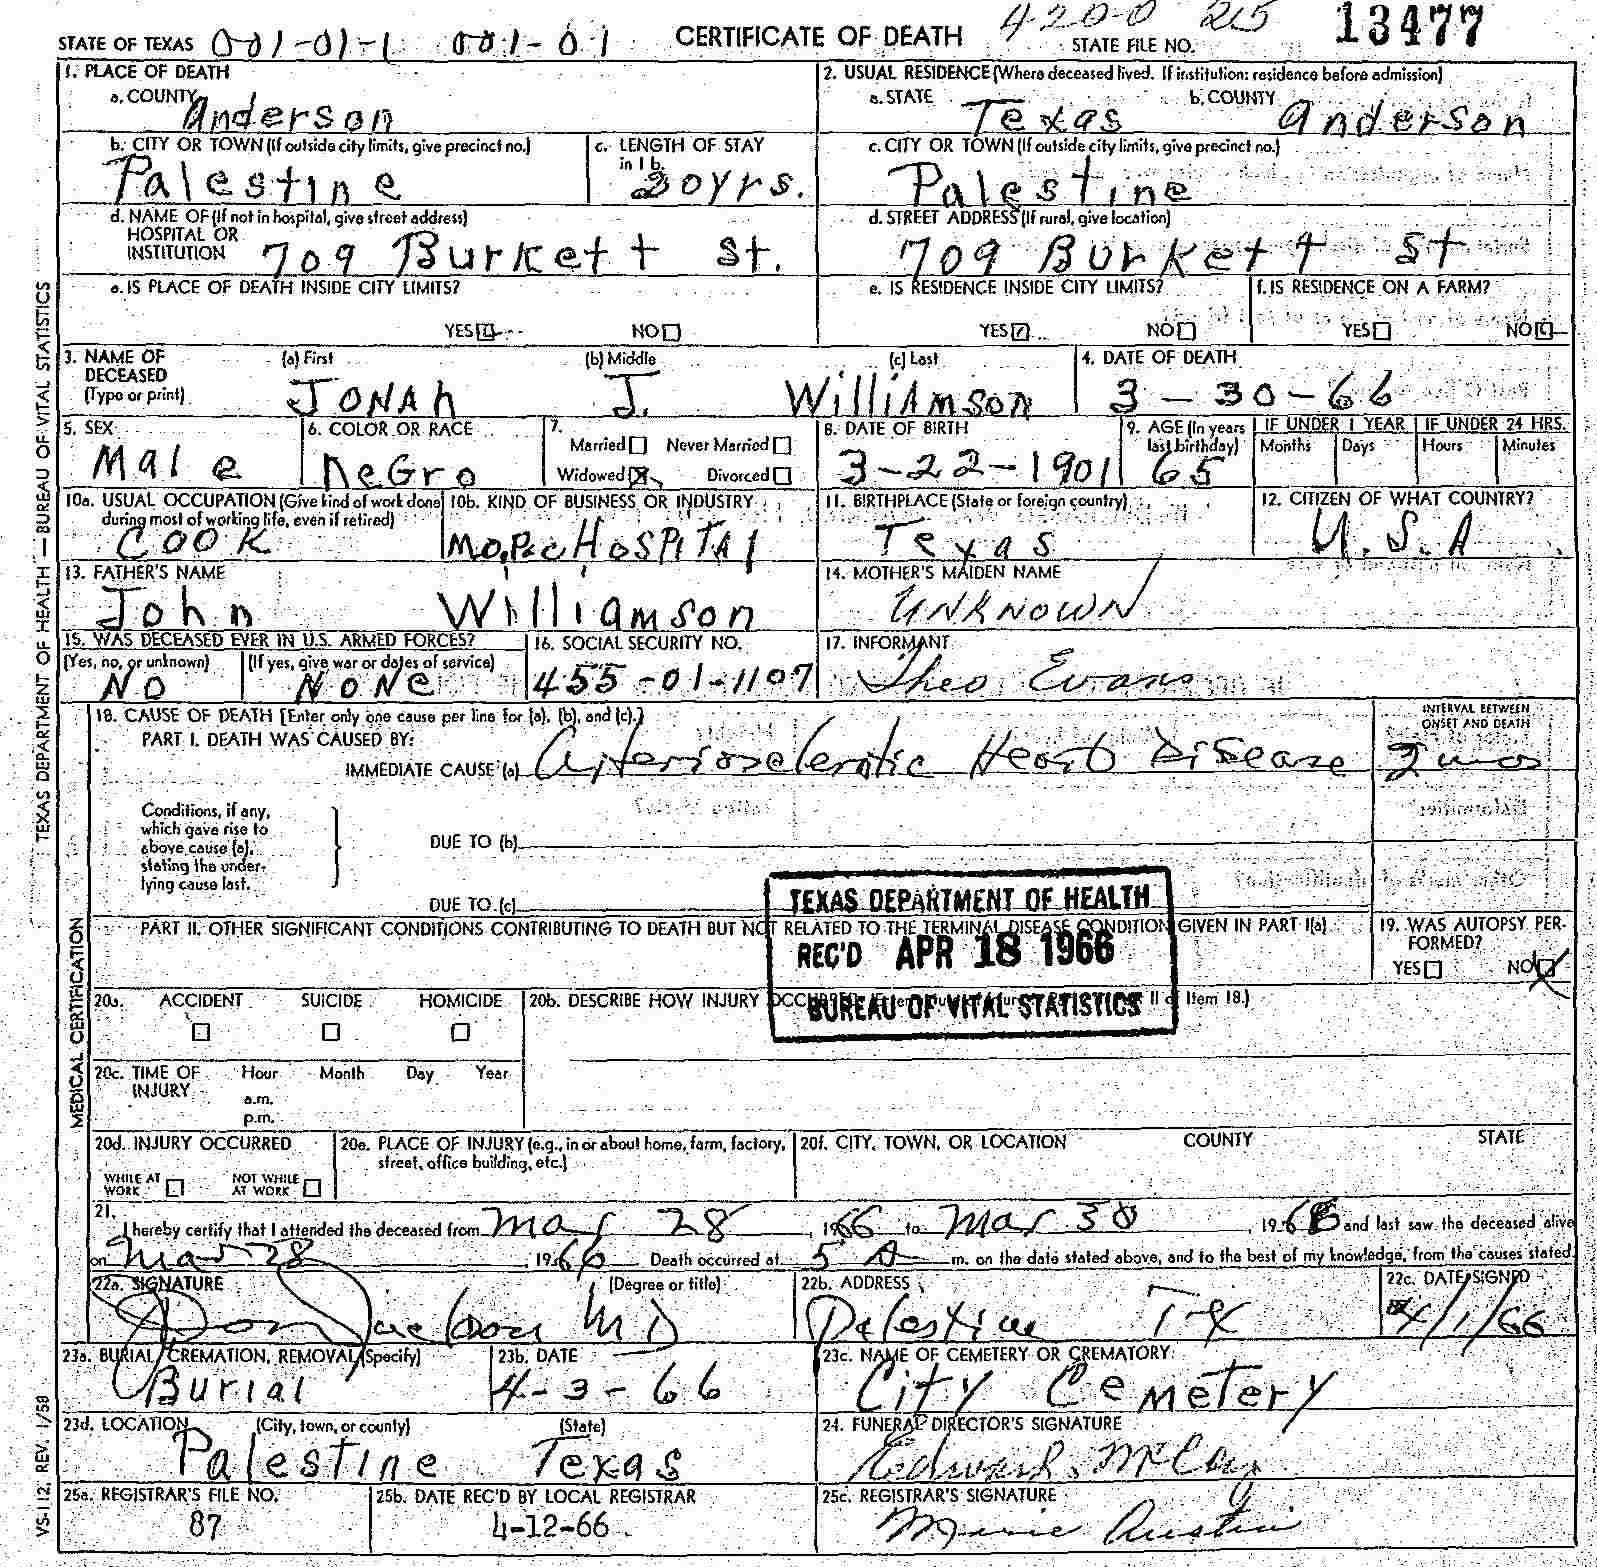 STATE OF TEXAS 001-01-1 001-01 CERTIFICATE OF DEATH 4200 215 STATE FILE NO. 13477
1. PLACE OF DEATH
a. COUNTY Anderson
2. USUAL RESIDENCE (Where deceased lived. If institution: residence before admission)
a. STATE Texas b. COUNTY Anderson
b. CITY OR TOWN (If outside city limits, give precinct no.) Palestine
c. LENGTH OF STAY in 1 b. 20 yrs.
c. CITY OR TOWN (If outside city limits, give precinct no.) Palestine
d. NAME OF (If not in hospital, give street address) HOSPITAL OR INSTITUTION 709 Burkett St.
d. STREET ADDRESS (If rural, give location) 709 Burkett St
e. IS PLACE OF DEATH INSIDE CITY LIMITS? YES NO
e. IS RESIDENCE INSIDE CITY LIMITS? YES NO
f. IS RESIDENCE ON A FARM? YES NO
3. NAME OF DECEASED (Type or print) (a) First JONAh (b) Middle J. (c) Last WilliAmson
4. DATE OF DEATH 3-30-66
5. SEX Male
6. COLOR OR RACE NeGro
7. Married Never Married Widowed Divorced
8. DATE OF BIRTH 3-22-1901
9. AGE (In years last birthday) 65
IF UNDER 1 YEAR Months Days
IF UNDER 24 HRS. Hours Minutes
10a. USUAL OCCUPATION (Give kind of work done during most of working life, even if retired) COOK
10b. KIND OF BUSINESS OR INDUSTRY Mo.Pac HOSPITAl
11. BIRTHPLACE (State or foreign country) Texas
12. CITIZEN OF WHAT COUNTRY? U.S.A
13. FATHER'S NAME John WilliAmson
14. MOTHER'S MAIDEN NAME UNKNOWN
15. WAS DECEASED EVER IN U.S. ARMED FORCES?
(Yes, no, or unknown) NO (If yes, give war or dates of service) NONe
16. SOCIAL SECURITY NO. 455-01-1107
17. INFORMANT Theo Evans
18. CAUSE OF DEATH [Enter only one cause per line for (a), (b), and (c).]
PART I. DEATH WAS CAUSED BY:
IMMEDIATE CAUSE (a) Arteriosclerotic Heart Disease
INTERVAL BETWEEN ONSET AND DEATH 2 mos
Conditions, if any, which gave rise to above cause (a), stating the underlying cause last.
DUE TO (b)
DUE TO (c)
TEXAS DEPARTMENT OF HEALTH
REC'D APR 18 1966
BUREAU OF VITAL STATISTICS
PART II. OTHER SIGNIFICANT CONDITIONS CONTRIBUTING TO DEATH BUT NOT RELATED TO THE TERMINAL DISEASE CONDITION GIVEN IN PART I(a)
19. WAS AUTOPSY PERFORMED? YES NO
20a. ACCIDENT SUICIDE HOMICIDE
20b. DESCRIBE HOW INJURY OCCURRED II of Item 18.)
20c. TIME OF INJURY Hour Month Day Year
a.m.
p.m.
20d. INJURY OCCURRED
WHILE AT WORK NOT WHILE AT WORK
20e. PLACE OF INJURY (e.g., in or about home, farm, factory, street, office building, etc.)
20f. CITY, TOWN, OR LOCATION COUNTY STATE
21. I hereby certify that I attended the deceased from Mar 28, 1966 to Mar 30, 1966 and last saw the deceased alive
on Mar 28 1966 Death occurred at 5 A m. on the date stated above, and to the best of my knowledge, from the causes stated.
22a. SIGNATURE (Degree or title) Don Jackson MD
22b. ADDRESS Palestine TX
22c. DATE SIGNED 4/1/66
23a. BURIAL, CREMATION, REMOVAL (Specify) Burial
23b. DATE 4-3-66
23c. NAME OF CEMETERY OR CREMATORY City Cemetery
23d. LOCATION (City, town, or county) Palestine (State) Texas
24. FUNERAL DIRECTOR'S SIGNATURE Edward McCoy
25a. REGISTRAR'S FILE NO. 87
25b. DATE REC'D BY LOCAL REGISTRAR 4-12-66
25c. REGISTRAR'S SIGNATURE Marie Austin
TEXAS DEPARTMENT OF HEALTH — BUREAU OF VITAL STATISTICS
MEDICAL CERTIFICATION
VS-112, REV. 1/58